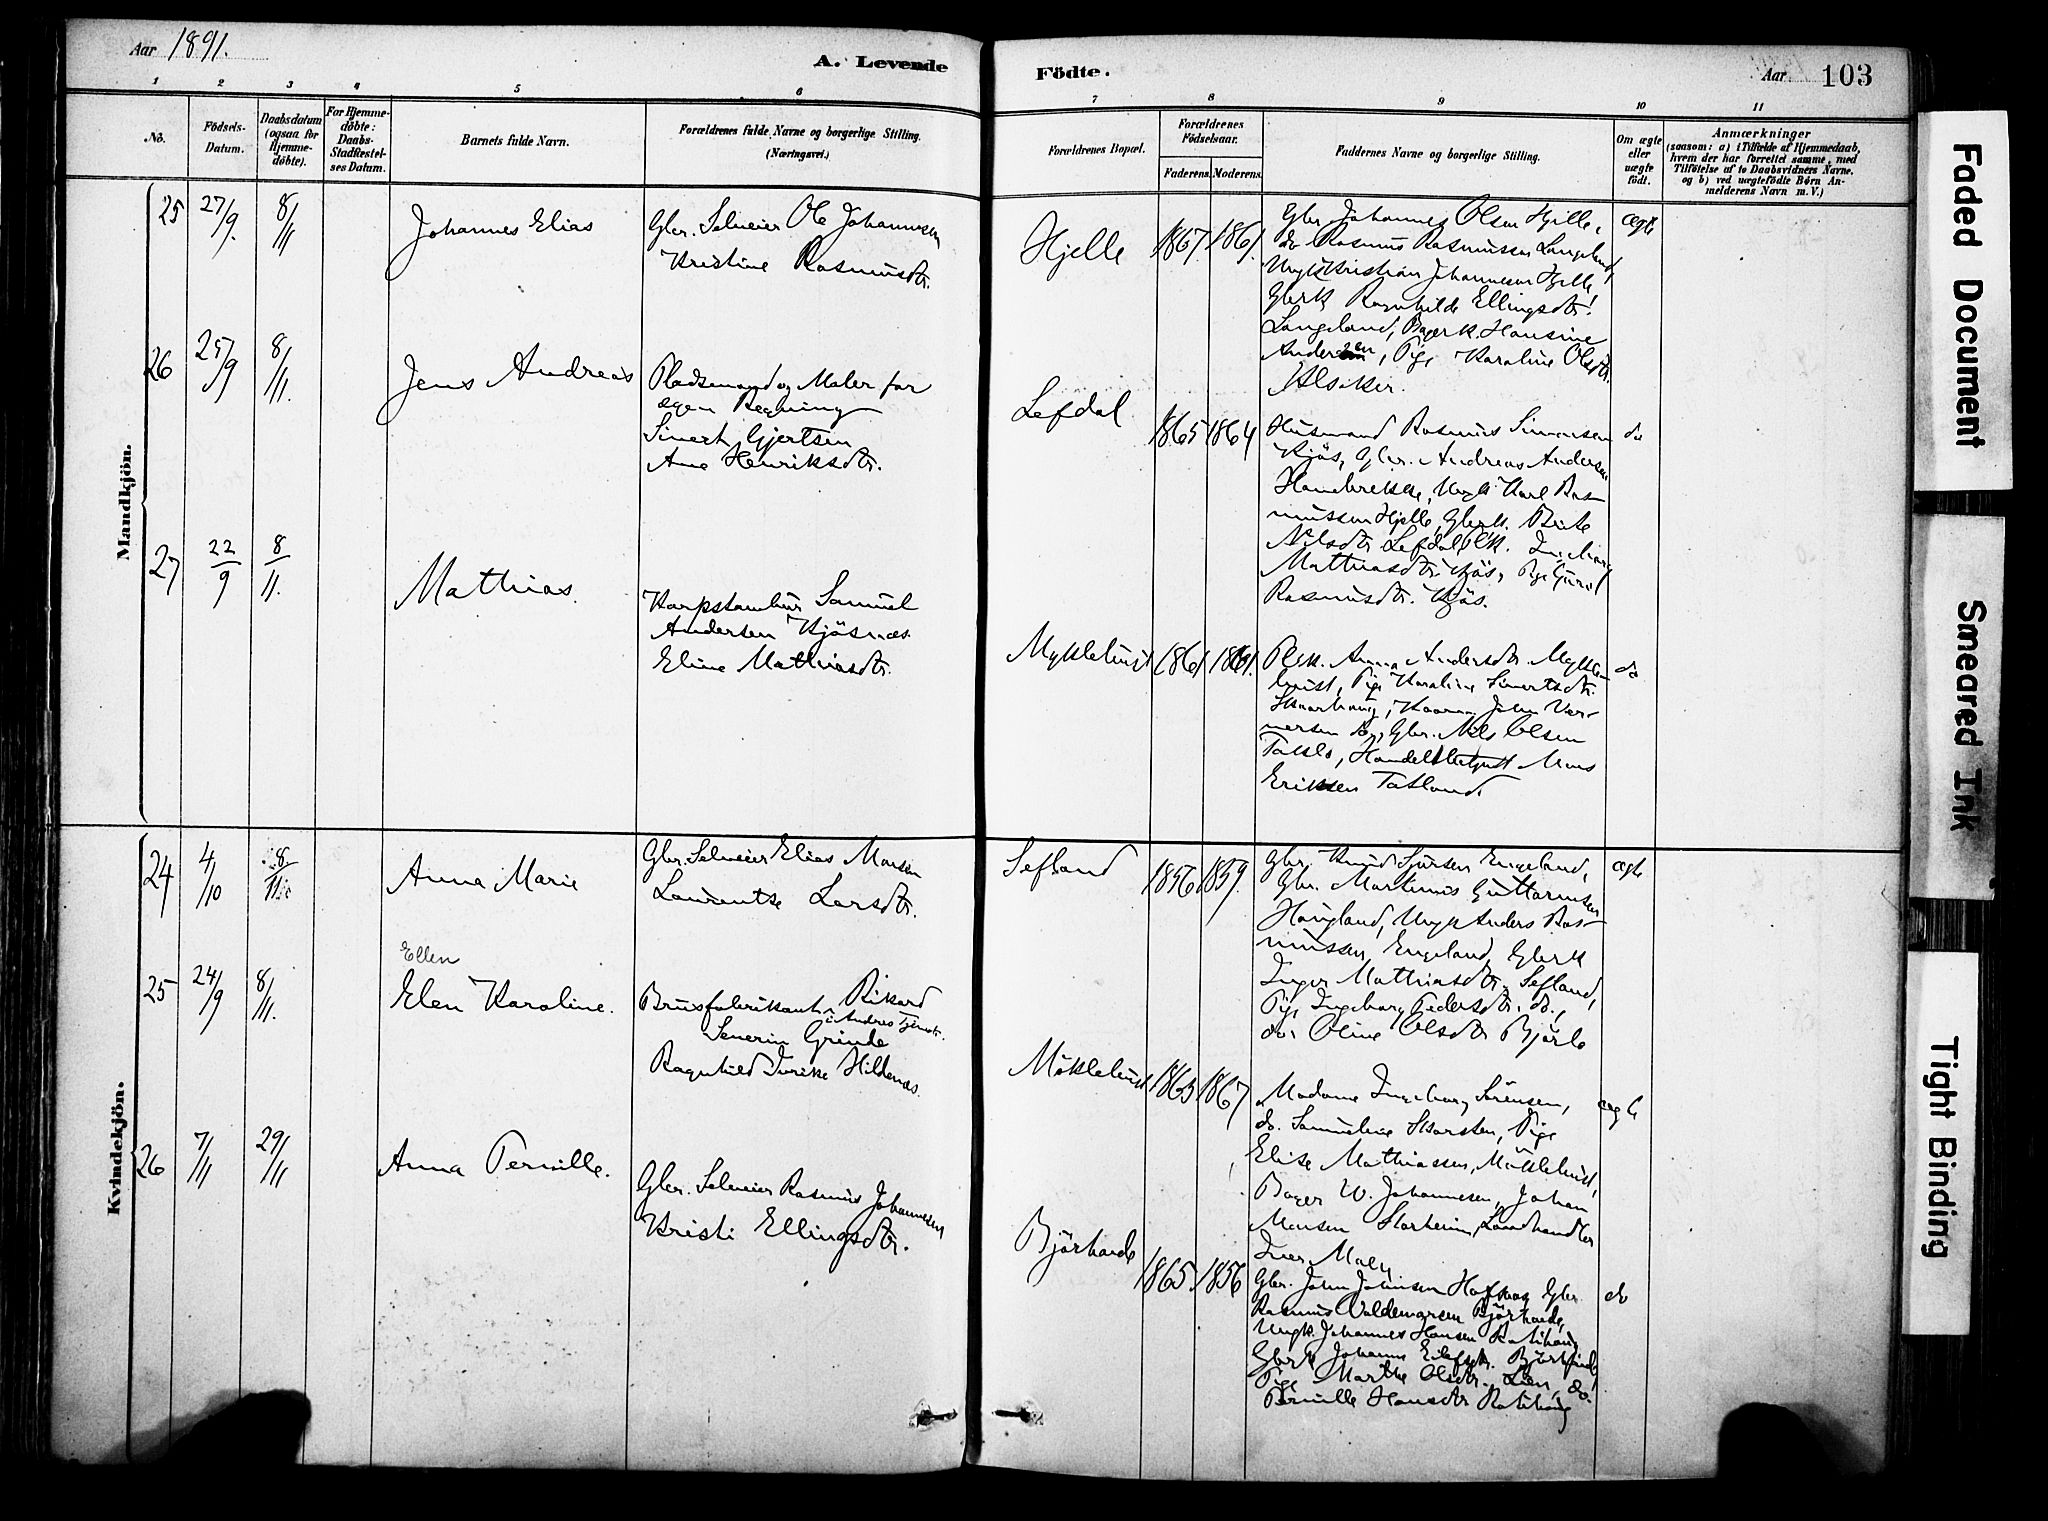 Aar 1891.
A. Levende
Födte.
Aar 103
1
2
3
4
5
6
7
8
9
10
11
No.
Födsels-
Datum.
Daabsdatum
(ogsaa for
Hjemme-
döbte).
For Hjemme-
döbte:
Daabs-
Stadfestel-
ses Datum.
Barnets fulde Navn.
Forældrenes fulde Navne og borgerlige Stilling.
(Næringsvei.)
Forældrenes Bopæl.
Forældrenes
Födselsaar.
Faderens.
Moderens.
Faddernes Navne og borgerlige Stilling.
Om ægte
eller
uægte
födt.
Anmærkninger
(saasom: a) i Tilfælde af Hjemmedaab,
hvem der har forrettet samme, med
Tilföielse af to Daabsvidners Navne.
og b) ved uægtefödte Börn An-
melderens Navn m. V.)
Mandkjön.
25
27/9.
8/11
Johannes Elias
Gbr. Selveier Ole Johannesen
Kristine Rasmusdtr.
Hjelle
1867.
1861.
Gbr. Johannes Olsen Hjelle,
do Rasmus Rasmussen Langeland,
Ungk Kristian Johannesen Hjelle,
Gbrk Ragnhilde Ellingsdtr.
Langeland, Bagerk. Hansine
Andersen, Pige Karoline Olsdtr.
ægte
26
25/9
8/11.
Jens Andreas
Pladsmand og Maler for
egen Regning
Sivert Gjertsen
Ane Henriksdtr.
Lefdal
1865
1864
Husmand Rasmus Simonsen
Kjös, Gbr. Andreas Andersen
Hambrekke, Ungk Karl Ras-
mussen Hjelle, Gbrk. Brite
Nilsdtr Lefdal, Plk. Ingeborg
Mathiasdtr. Kjös, Pige Guril
Rasmusdtr. Kjös.
do
27
22/9
8/11.
Mathias.
Samuel
Andersen Kjösnæs.
Eline Mathiasdtr.
Myklebust
1861
1861.
Anna Andersdtr. Mykle-
bust, Pige Karoline Sivertsdtr.
Skaarhaug, John Ver-
nersen do, Gbr. Nils Olsen
Mons
Eriksen Totland.
do
Kvindekjön.
24
4/10
8/11
Anna Marie
Gbr. Selveier Elias Monsen
Laurentse Larsdtr.
Sefland
1856
1859.
Gbr. Knud Sjursen Engeland,
Gbr. Martinus Guttormsen
Hougland, Ungk Anders Ras-
mussen, Engeland, Gbrk
Inger Mathiasdtr. Sefland,
Pige Ingeborg Pedersdtr. do.,
do. Oline Olsdtr Bjørlo
ægte
25
24/9
8/11.
Ellen
Elen Karoline.
Brusfabrikant Rikard
i Andres Tjeneste.
Severin Grinde
Ragnhild Hildenæs.
Möklebust
1865
1867
Madame Ingeborg Sørensen,
do. Samueline Skorsten, Pige
Elise Mathiassen, Möklebust,
Bager W. Johannesen, Johan
Monsen Storheim, Landhandler
Iver Maly
ægte
26
7/11
29/11
Anna Pernille.
Gbr. Selveier Rasmus Johannesen
Kristi Ellingsdtr.
Björhovde
1865.
1856
Gbr. John Johnsen Gbr.
Rasmus Valdemarsen Björhovde,
Ungk. Johannes Hansen Rotihaug
Gbrk Johanne Björhovde,
Pige Marthe Olsdtr. Lien, do.
Pernille Hansdtr Rotihaug
do
Faded Document
Smeared Ink
Tight Binding